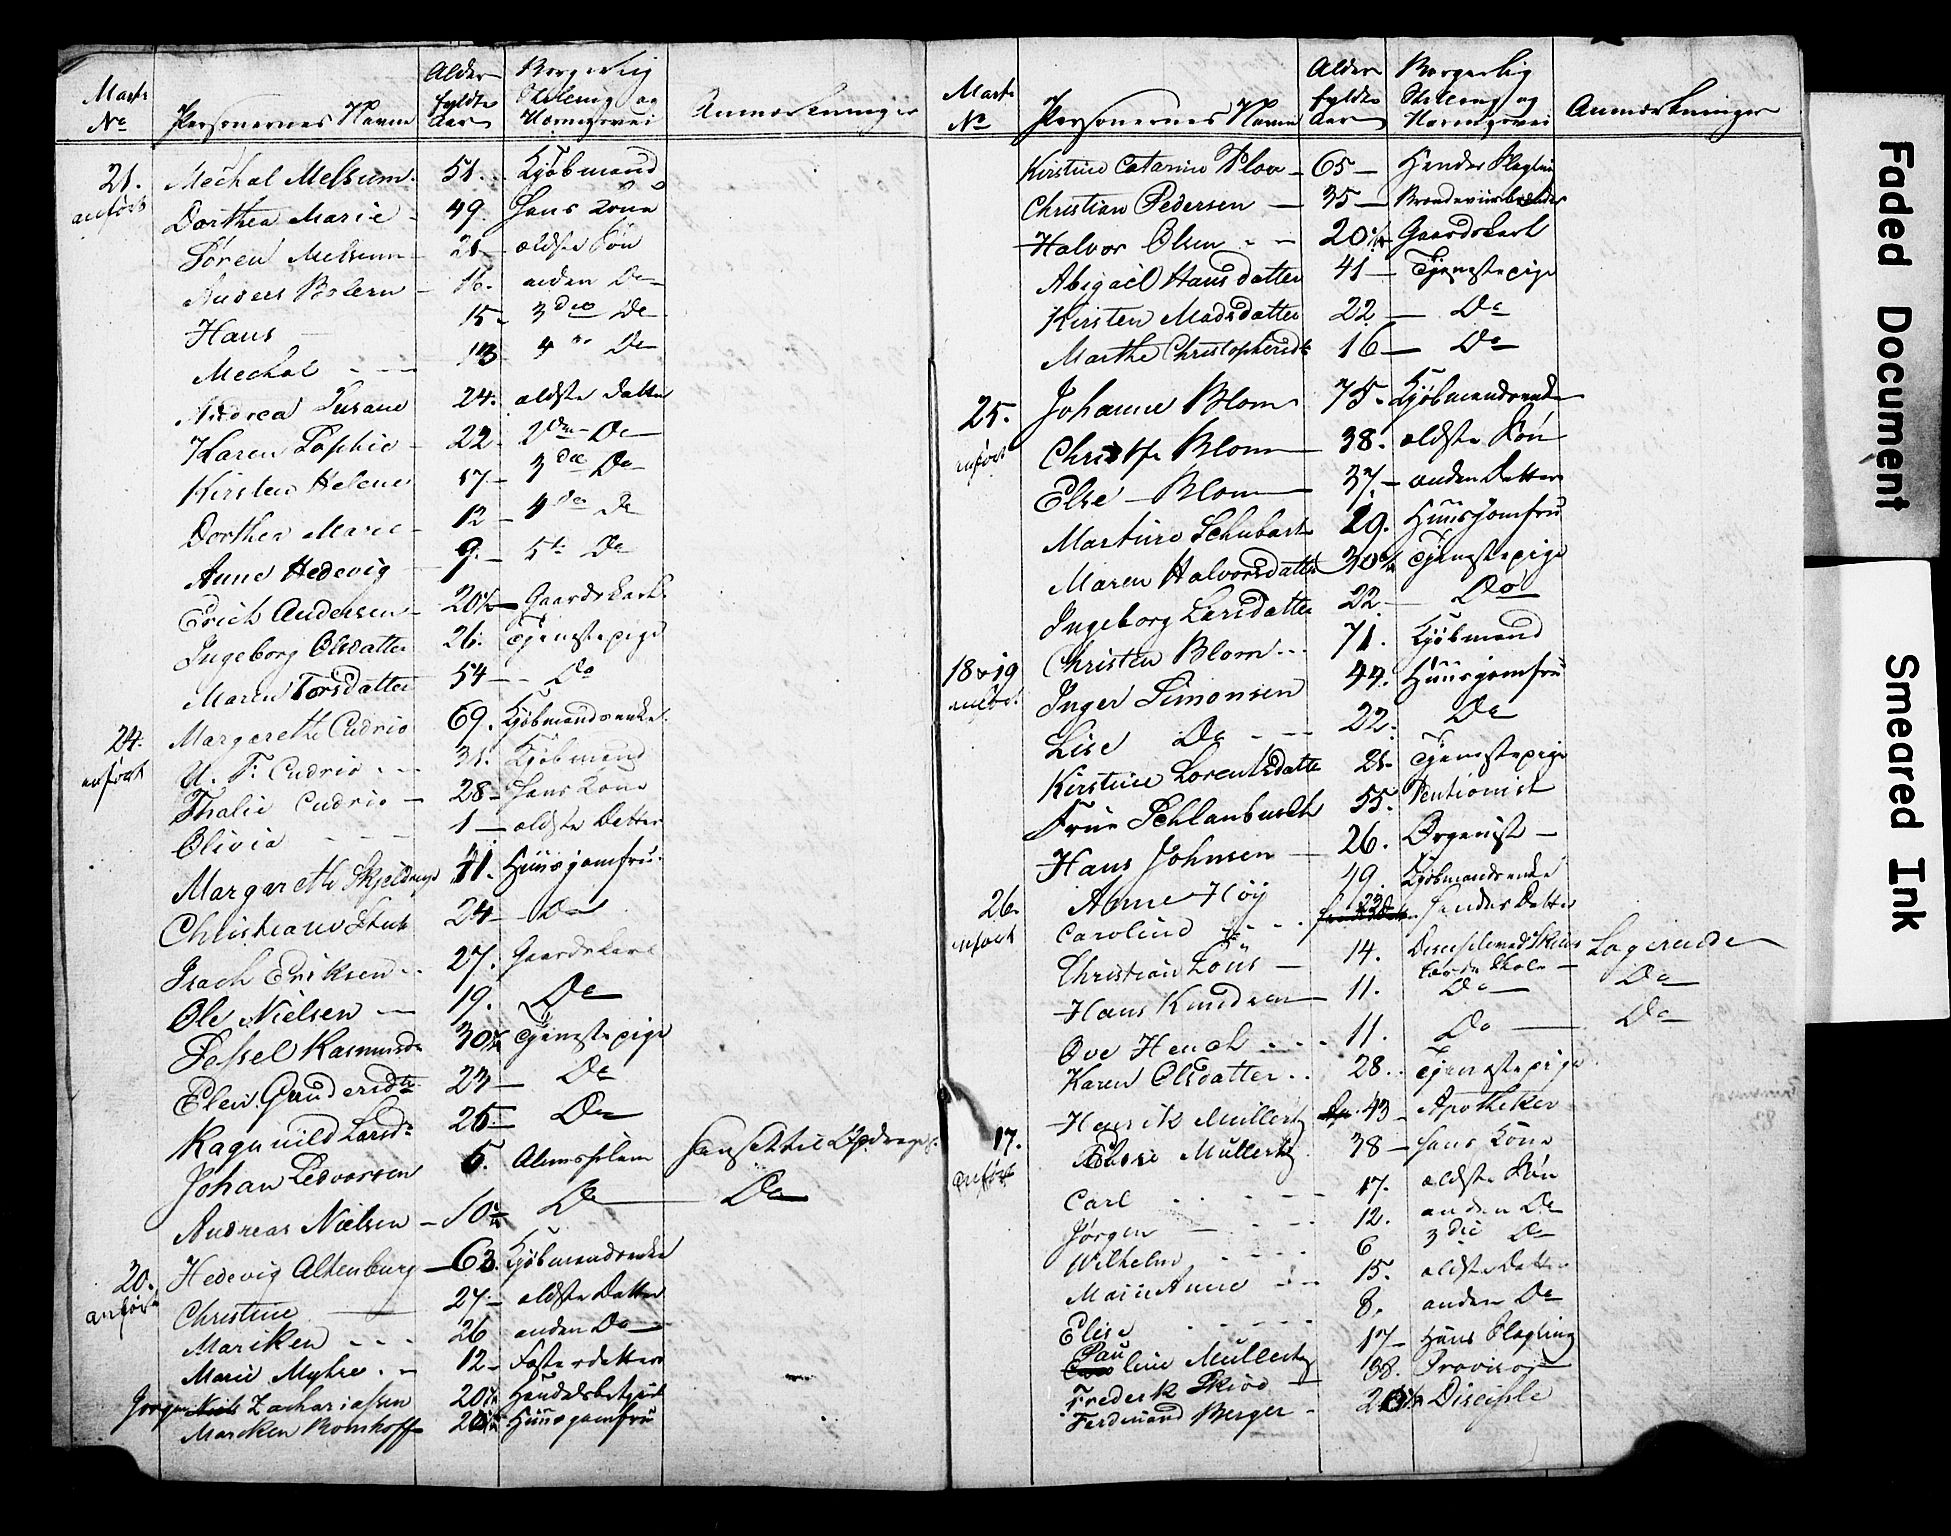 Matr. No Personernes Navne Alder fyldte Aar Borgerlig Stilling og Næringsvei Anmærkninger
21. anført Mechal Melsum 51. Kjøbmand
Dorthea Marie 49. Hans Kone
Søren Melsum 21 ældste Søn
Anders Bolern 16. anden Do
Hans 15 3die Do
Mechal 13 4 Do
Andrea Susane 24. ældste Datter
Karen Sophie 22 2den Do
Kirsten Helene 17 3die Do
Dorthea Marie 12 4de Do
Anne Hedevig 9. 5te Do
Erich Andersen 20 Gaardskarl
Ingeborg Olsdatter 26. Tjenestepige
Maren Torsdatter 54 Do
24. anført Margarethe Cudrio 69. Kjøbmandsenke
U. F. Cudrio 31. Kjøbmand
Thalie Cudrio 28 Hans Kone
Olivia 1 ældste Datter
Margarethe 41. Huusjomfru
Christiane 24 Do
Isach Eriksen 27. Gaardskarl
Ole Nielsen 19. Do
Sessel Rasmusdr 30 Tjenestepige
Elen Gundersdtr 23 Do
Ragnnild Larsdr 25 Do
Johan Sedvorsen 5. Almisselem Hensat til Opdragelse
Andreas Nielsen 10 Do Do
20. anført Hedevig Altenburg 63. Kjøbmandsenke
Christine 27 ældste Datter
Mariken 26 anden Do
Marie Myhre 12 Fosterdatter
Jørgen Zachariassen 20 Handelsbetjent
Mariken Bomhoff 20 Huusjomfru
Matr. No Personernes Navne Alder fyldte Aar Borgerlig Stilling og Næringsvei Anmærkninger
Kirstine Catarine Plov 65 Hendes Slegtning
Christian Pedersen 35
Halvor Olsen 20 Gaardskarl
Abigael Hansdatter 41 Tjenestepige
Kirsten Madsdatter 22 Do
Marthe Christophersdr 16 Do
25. anført Johanne Blom 75. Kjøbmandsenke
Christofe Blom 38. ældste Søn
Else Blom 37 anden Datter
Martine Schubart 29. Huusjomfru
Maren Halvorsdatter 30 Tjenestepige
Ingeborg Larsdatter 22 Do
18 & 19 anført Christen Blom 71. Kjøbmand
Inger Simonsen 44. Huusjomfru
Lise Do 22. Do
Kirstine Lorentsdatter 21 Tjenestepige
Frue Schlanbusch 55. Pentionist
Hans Johnsen 26. Organist
26. anført Anne Høy 49. Kjøbmandsenke
Caroline 23 Hendes Datter
Christian Køus 14. Discipel ved Skiens lærde Skole Logerende
Hans Knudsen 11. Do Do
Ove Hench 11. Do Do
Karen Olsdatter 28. Tjenestepige
17. anført Henrik Mullertz 43 Apotheker
Mullertz 38 Hans Kone
Carl 17. ældste Søn
Jørgen 12. anden Do
Wilhelm 6 3die Do
Marie Anne 15. ældste Datter
Elise 8. anden Do
Pauline Mullertz 17 Hans Slegtning
Frederk Skiød 18. Provisor
Ferdinand Berger 20 Disciple
Faded Document
Smeared Ink